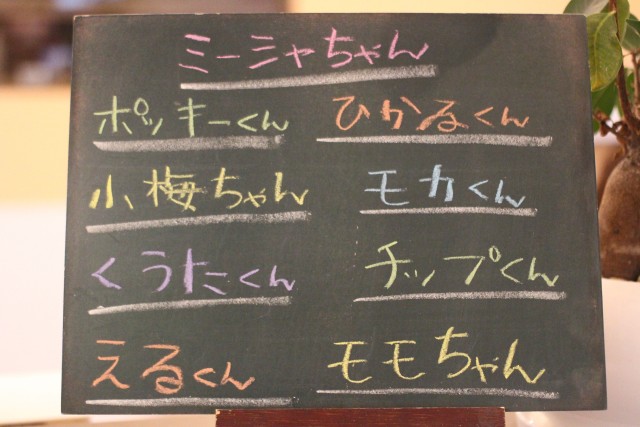 ミーシャちゃん
ポッキーくん ひかるくん
小梅ちゃん モカくん
くうたくん チップくん
えるくん モモちゃん